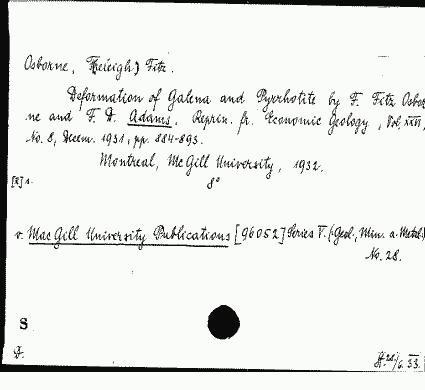 Osborne, F(releigh) Fitz.
Deformation of Galena and Pyrrhotite by F. Fitz Osbor-
ne and F. D. Adams. Reprin. fr. Economic Geology, Vol. XXVI,
No. 8, Decem. 1931, pp. 884-893.
Montreal, McGill University, 1932.
[R] 1. 8°
v. MacGill University Publications [96052] Series V. (Geol., Min. a. Metal.)
No. 28.
S